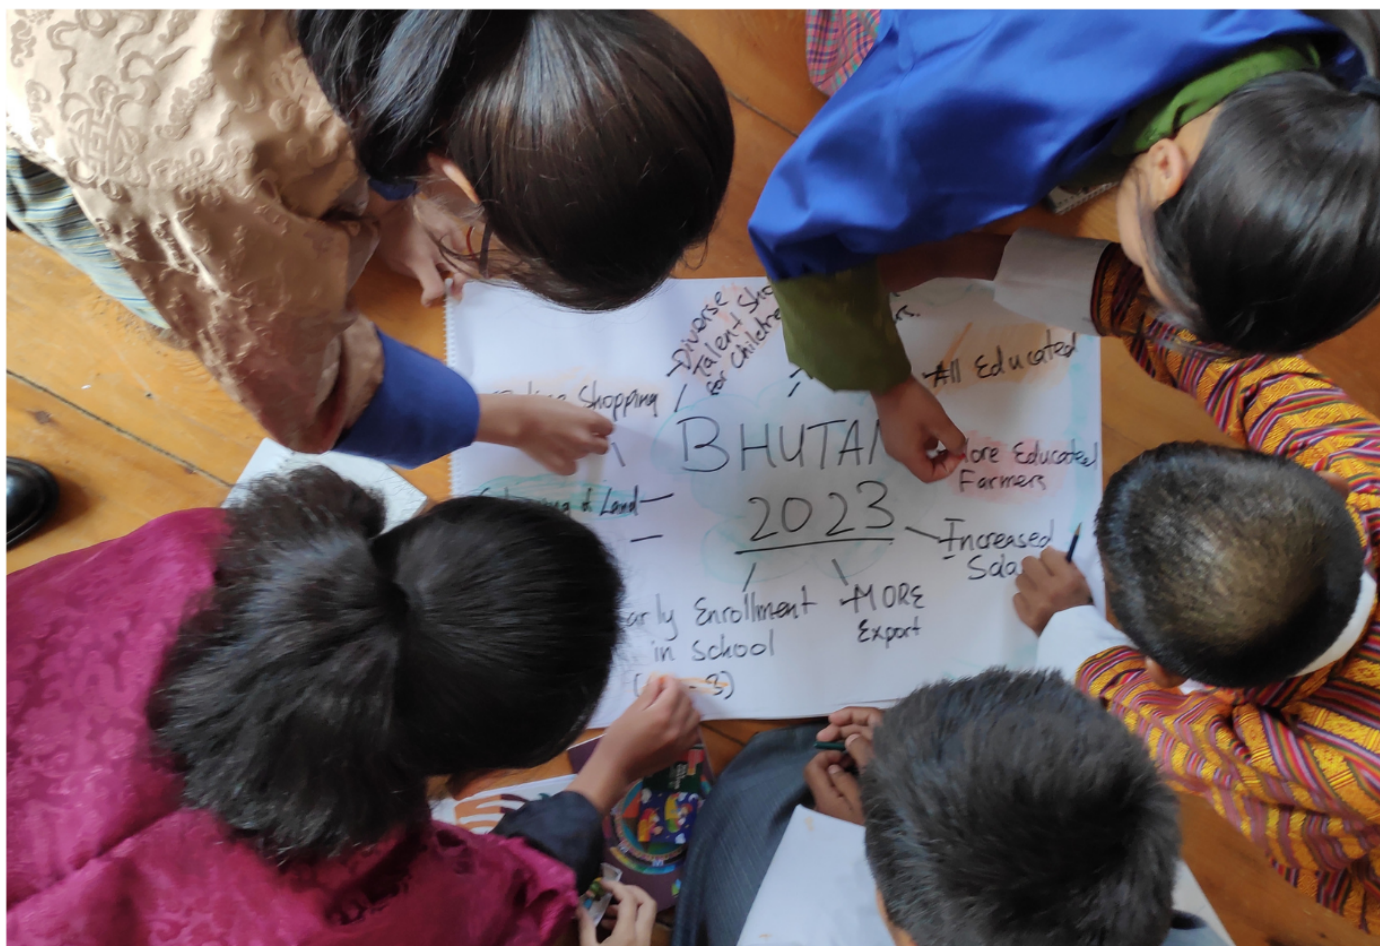 Diverse
Talent Sho
for Childre
rs.
All Educated
Shopping
BHUTAN
2023
More Educated
Farmers
of Land
Increased
Sala
arly Enrollment
in School
- 3)
MORE
Export